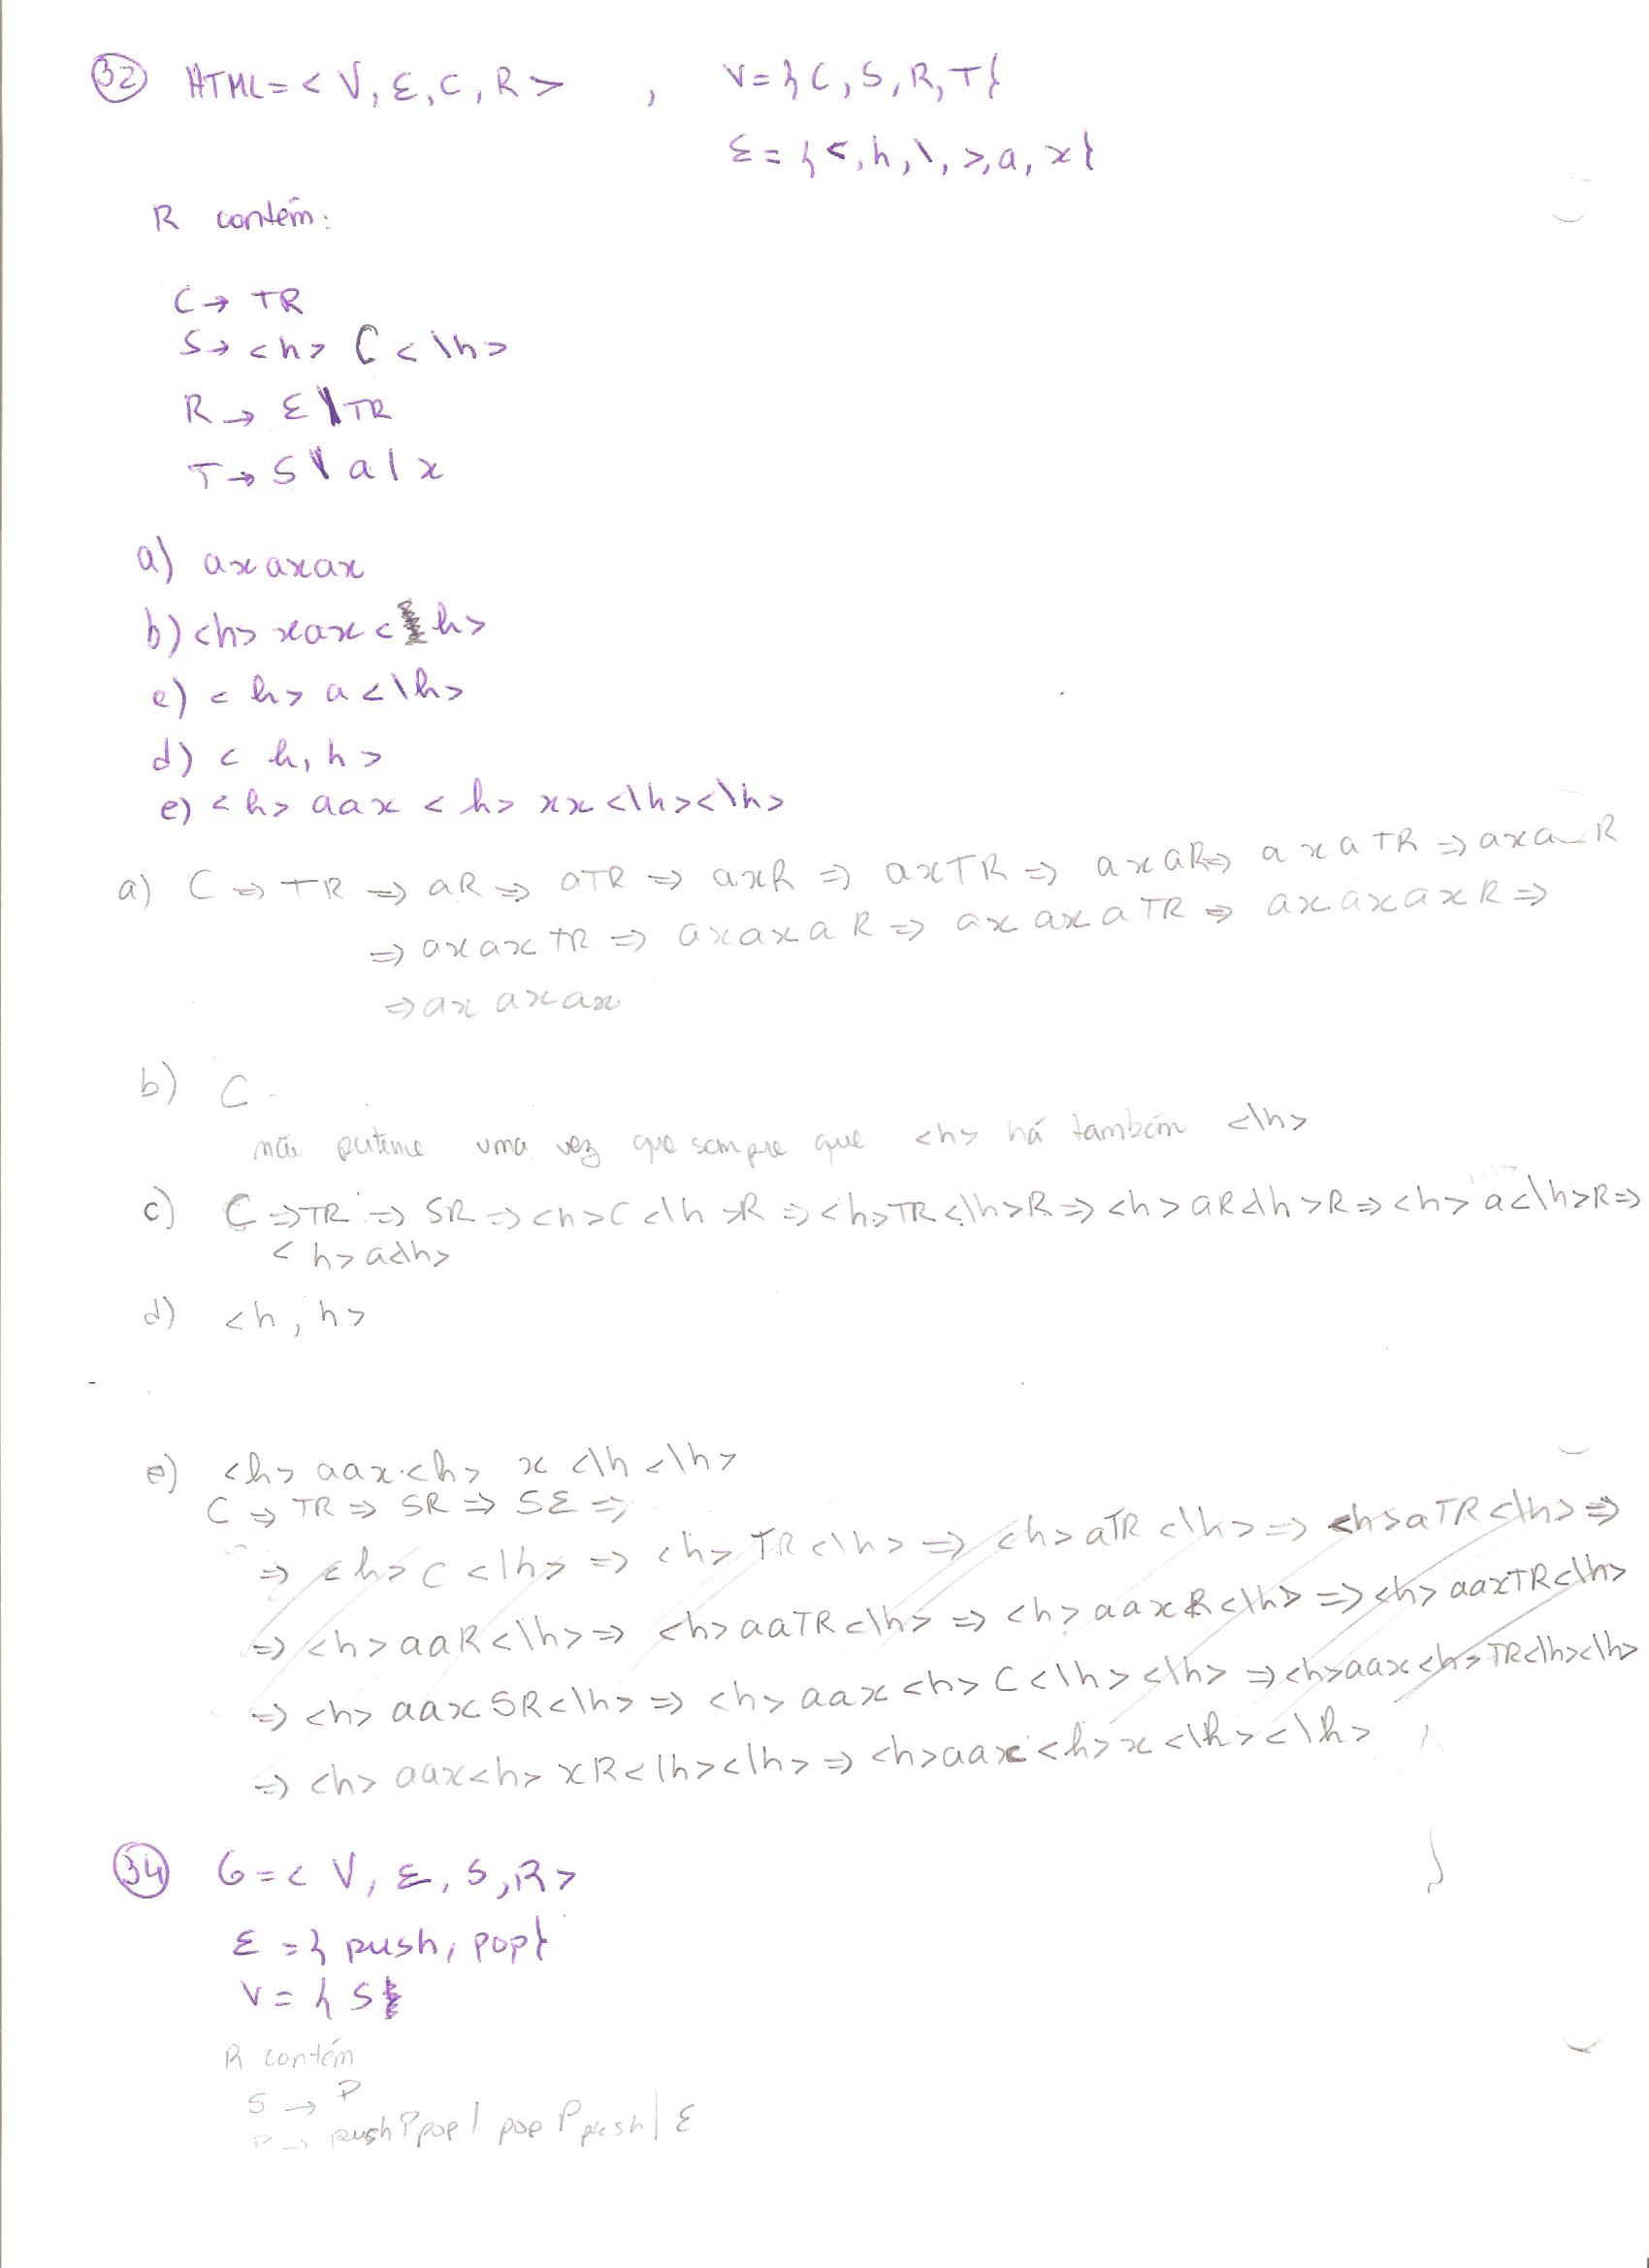 32 HTML = < V, Σ, C, R > , V = { C, S, R, T }
Σ = { <, h, \, >, a, x }
R contém:
C → TR
S → <h> C <\h>
R → ε | TR
T → S | a | x
a) axaxax
b) <h> xax < h>
c) <h> a <\h>
d) < h, h >
e) <h> aax <h> xx <\h><\h>
a) C ⇒ TR ⇒ aR ⇒ aTR ⇒ axR ⇒ axTR ⇒ axaR ⇒ axaTR ⇒ axa R
⇒ axaxTR ⇒ axaxaR ⇒ axaxaTR ⇒ axaxaxR ⇒
⇒ axaxax
b) C
não pertence uma vez que sempre que <h> há também <\h>
c) C ⇒ TR ⇒ SR ⇒ <h>C<\h>R ⇒ <h>TR<\h>R ⇒ <h>aR<\h>R ⇒ <h>a<\h>R ⇒
<h>a<\h>
d) <h, h>
e) <h> aax <h> x <\h <\h>
C ⇒ TR ⇒ SR ⇒ Sε ⇒
⇒ <h>C<\h> ⇒ <h>TR<\h> ⇒ <h>aTR<\h> ⇒ <h>aTR<\h> ⇒
⇒ <h>aaR<\h> ⇒ <h>aaTR<\h> ⇒ <h>aaxR<\h> ⇒ <h>aaxTR<\h>
⇒ <h>aaxSR<\h> ⇒ <h>aax<h>C<\h><\h> ⇒ <h>aax<h>TR<\h><\h>
⇒ <h>aax<h>xR<\h><\h> ⇒ <h>aax<h>x<\h><\h>
34 G = < V, Σ, S, R >
Σ = { push, pop }
V = { S
R contém
S → P
P → push P pop | pop P push | ε